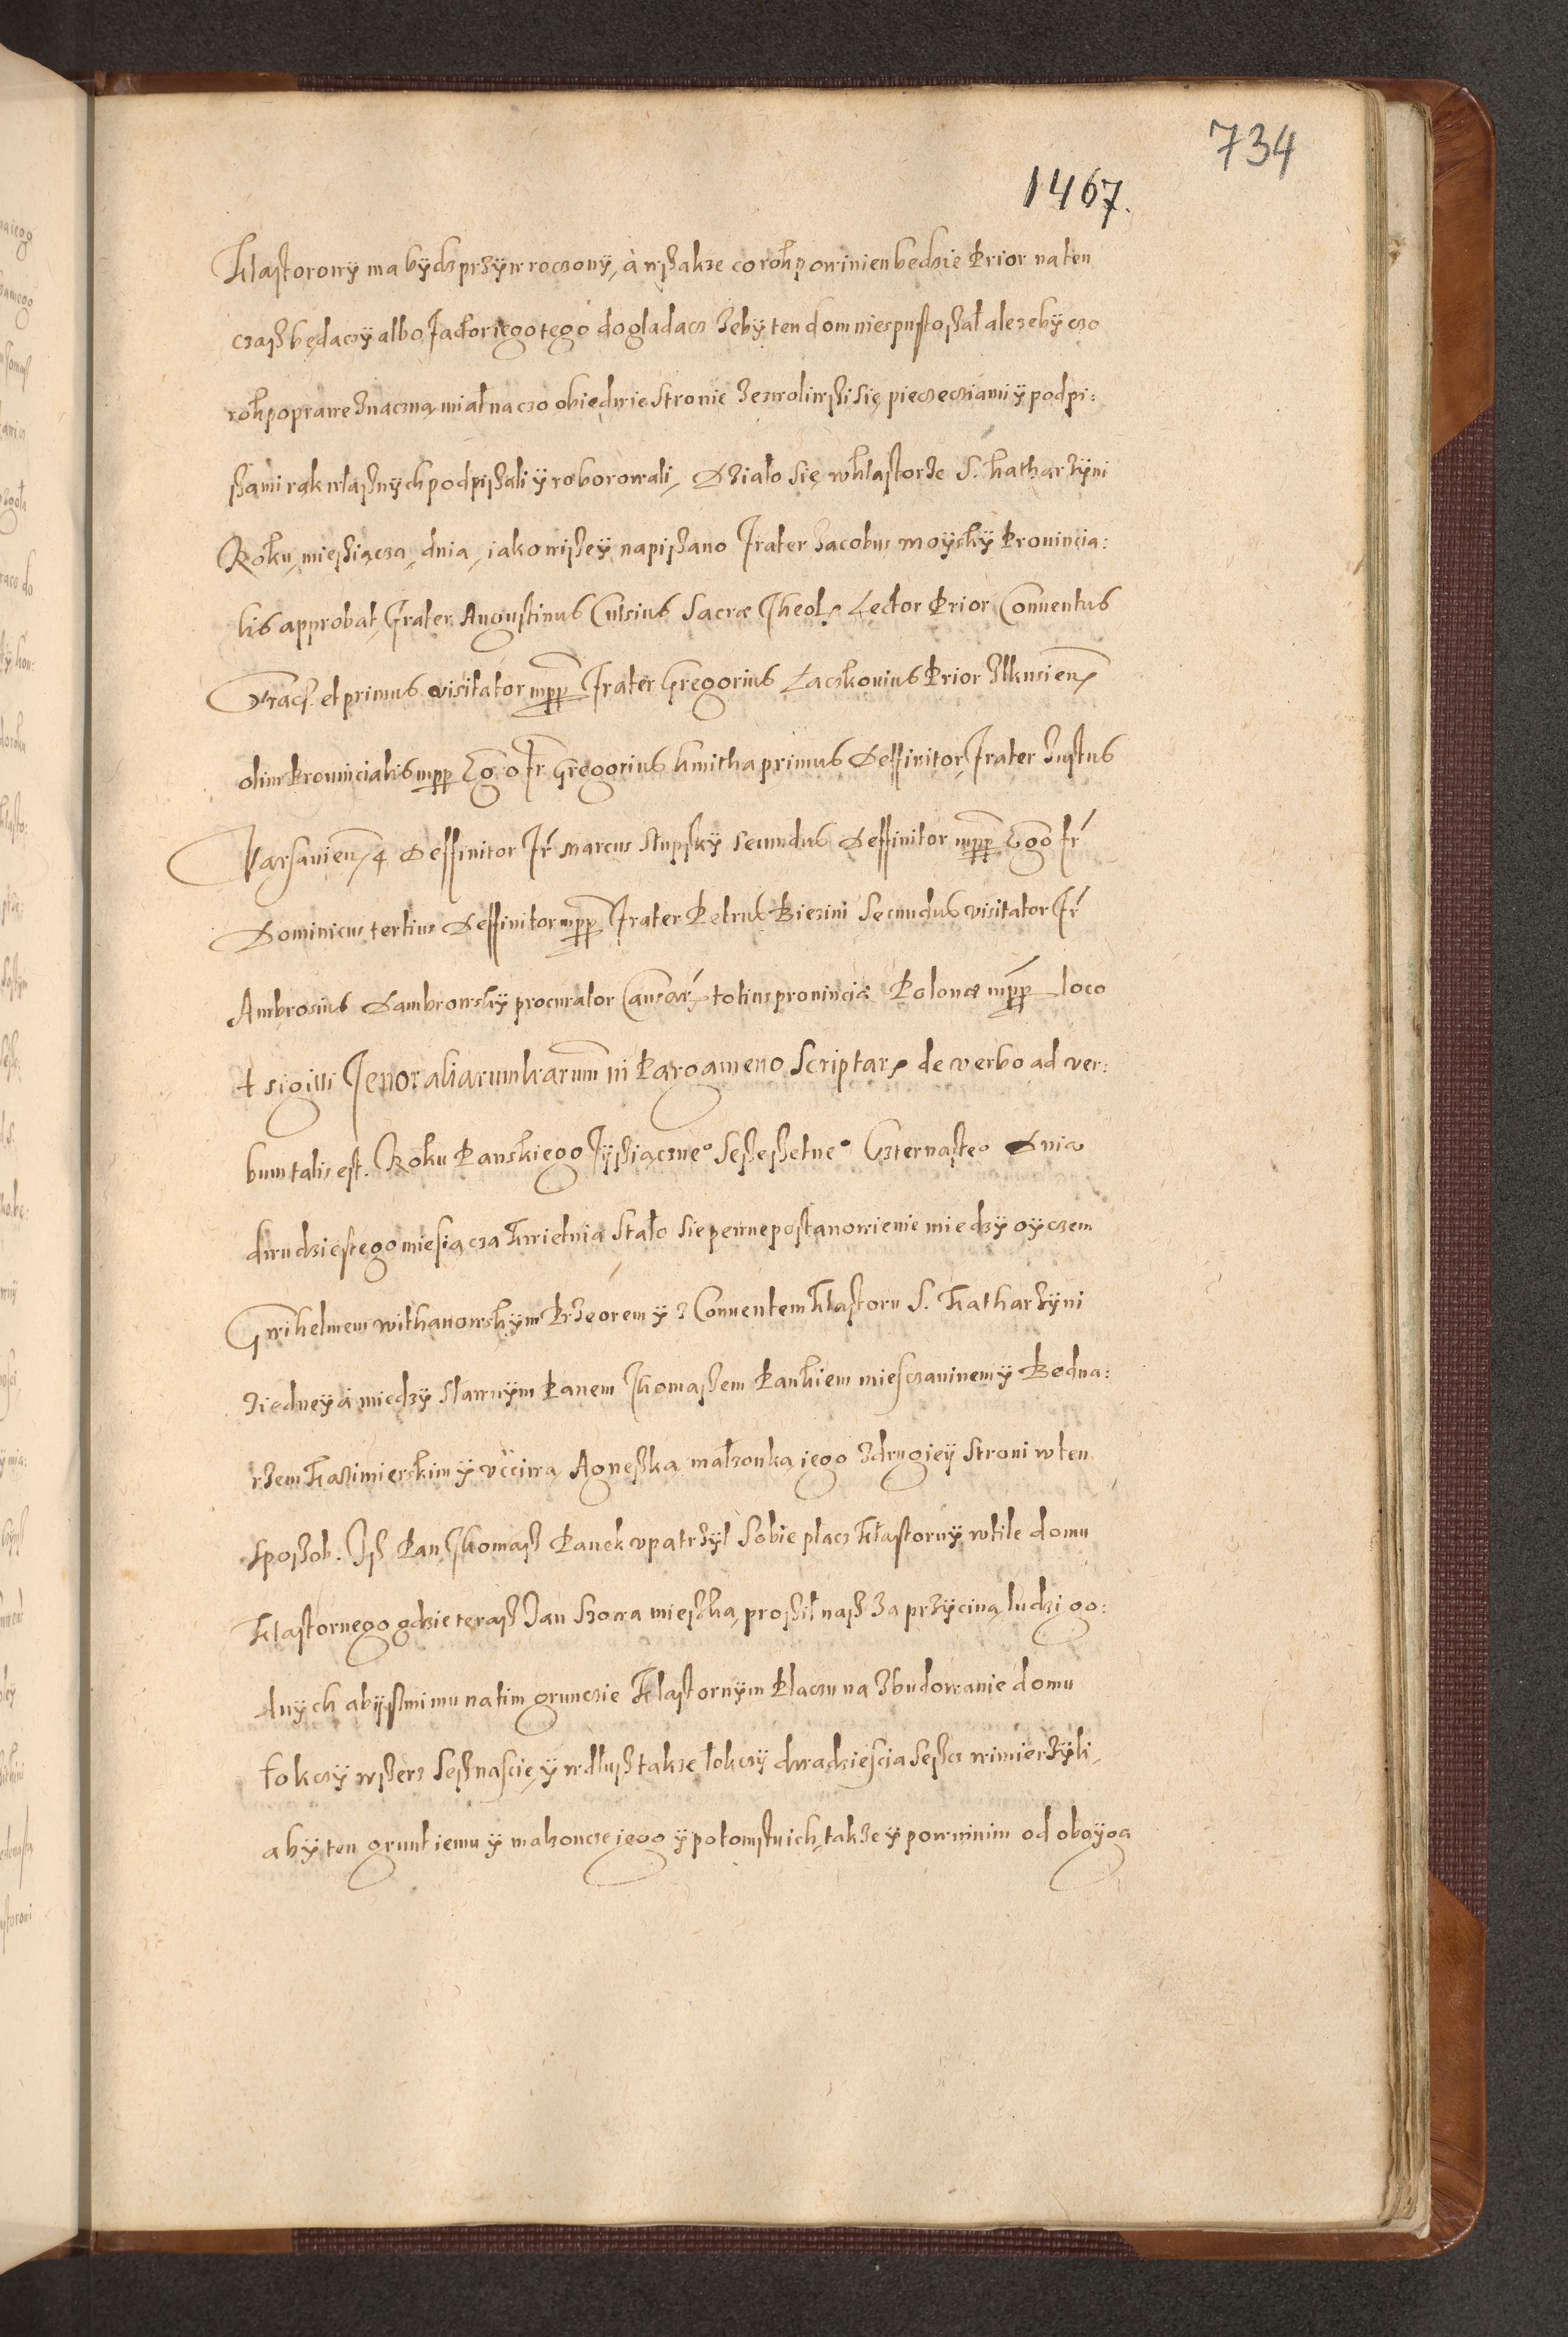 734
1467.
Klastorowy ma bÿdz przÿwroczonÿ, à wszakze co rok powinien bedzie Prior na ten
czasz będaczÿ albo Factor iego tego dogladacz zebÿ ten dom niespustoszał ale zebÿ czo
rok poprawe znaczną miał na czo obiedwie stronie zezwoliwszi się pieczęcziami ÿ podpi:
szami rąk własznÿch podpiszali ÿ roborowali, Działo się w klastorze S. Katharzÿni
Roku, miesziącza, dnia, iako wiszeÿ napiszano Frater Jacobus Moÿskÿ Prouincia:
lis approbat, Frater Augustinus Cutsius Sacræ Theol. Lector Prior Conuentus
Crac. et primus visitator mpp Frater Gregorius Laczkouius Prior Ilkusien.
olim Prouincialis mpp Ego Fr Gregorius Kmitha primus Deffinitor, Frater Justus
Varsauien. 4 Deffinitor Fr Marcus Słupskÿ secundus Deffinitor mpp Ego Fr
Dominicus tertius Deffinitor mpp Frater Petrus Biezini Secundus visitator Fr
Ambrosius Dambrowskÿ procurator Causar. totius prouinciæ Polonæ mpp loco
+ sigilli Tenor aliarum lrarum in Pargameno Scriptar. de verbo ad ver:
bum talis est. Roku Panskiego Tÿsziączne° Seszeszetne° Czternaste° Dnia
dwudziestego miesiącza Kwietnia Stało sie pewne postanowienie miedzÿ oÿczem
Gwihelmem Withanowskÿm Przeorem ÿ z Conuentem Klastoru S. Katharzÿni
ziedneÿ à miedzÿ sławnÿm Panem Thomaszem Pankiem miesczaninem ÿ Bedna:
rzem Kazimierskim ÿ vcciwą Agneszką małzonką iego zdrugieÿ stroni w ten
sposzob. Isz Pan Thomasz Panek vpatrzÿl Sobie placz Klastornÿ wtile domu
Klastornego gdzie terasz Jan Szowa mieszka, prosził nasz za przÿciną ludzi go:
dnÿch abÿssmi mu na tim gruncie Klastornÿm Placzu na zbudowanie domu
Łokczÿ wszerz Sesznascie, ÿ wdłusz takze łokczÿ dwadziescia seszcz wimierzÿli,
abÿ ten grunt iemu ÿ małzoncze iego ÿ potomstu ich, takze ÿ powinnim od oboÿga